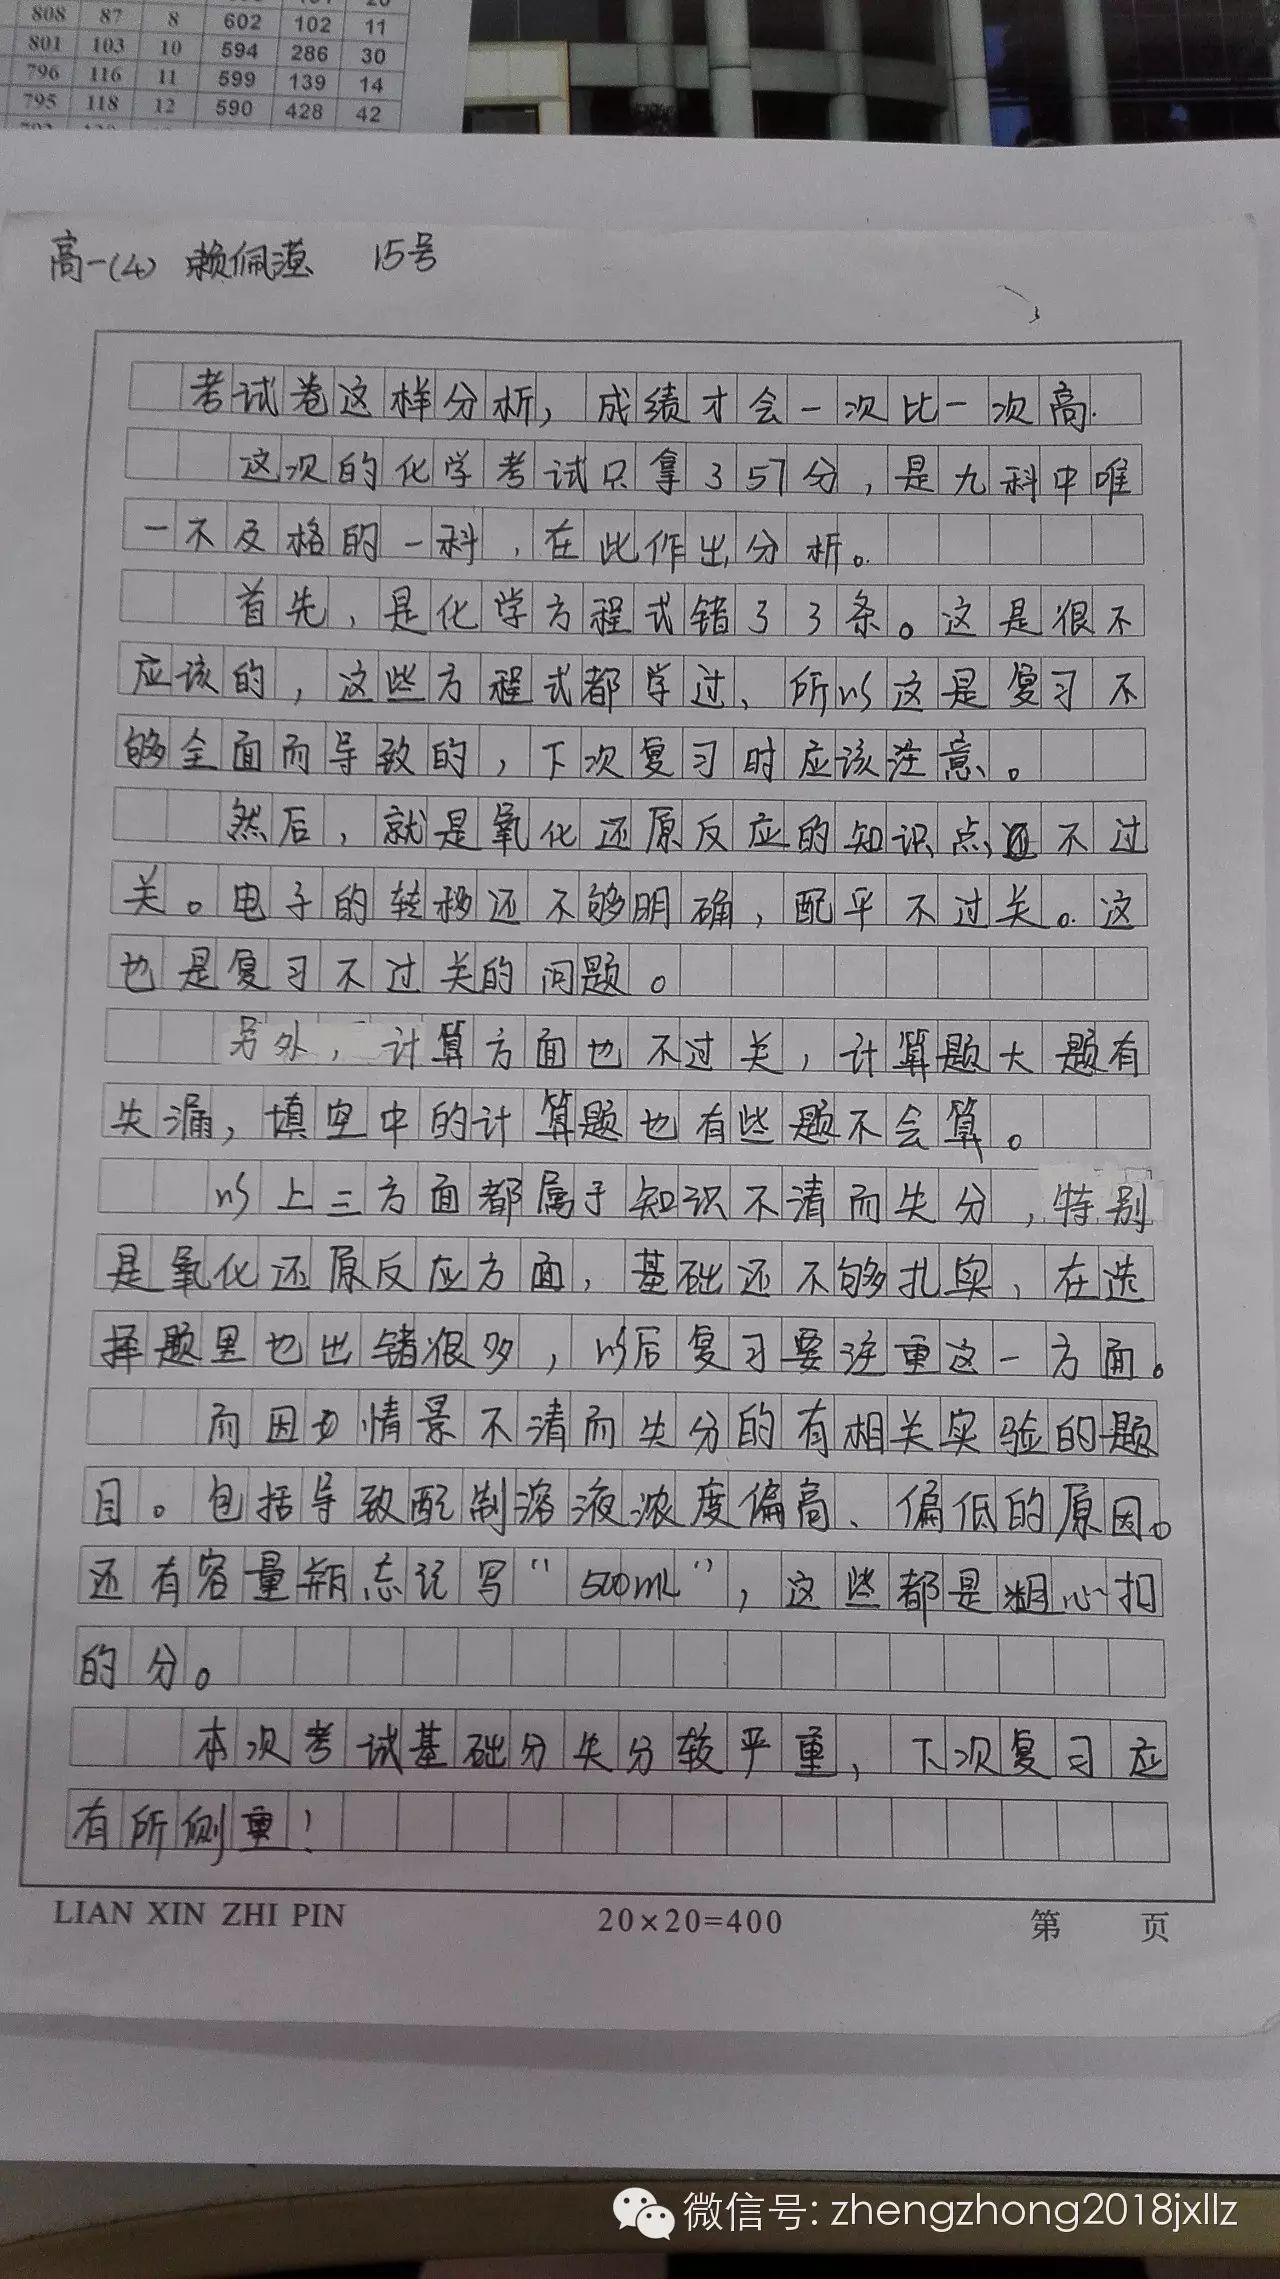 808 87 8 602 102 11
801 103 10 594 286 30
796 116 11 599 139 14
795 118 12 590 428 42
高一(4) 赖佩滢 15号
考试卷这样分析，成绩才会一次比一次高.
这次的化学考试只拿了57分，是九科中唯
一不及格的一科，在此作出分析。
首先，是化学方程式错了3条。这是很不
应该的，这些方程式都学过、所以这是复习不
够全面而导致的，下次复习时应该注意。
然后，就是氧化还原反应的知识点还不过
关。电子的转移还不够明确，配平不过关。这
也是复习不过关的问题。
另外，计算方面也不过关，计算题大题有
失漏，填空中的计算题也有些题不会算。
以上三方面都属于知识不清而失分，特别
是氧化还原反应方面，基础还不够扎实，在选
择题里也出错很多，以后复习要注重这一方面。
而因为情景不清而失分的有相关实验的题
目。包括导致配制溶液浓度偏高、偏低的原因。
还有容量瓶忘记写"500mL"，这些都是粗心扣
的分。
本次考试基础分失分较严重，下次复习应
有所侧重！
LIAN XIN ZHI PIN 20×20=400 第 页
微信号: zhengzhong2018jxllz